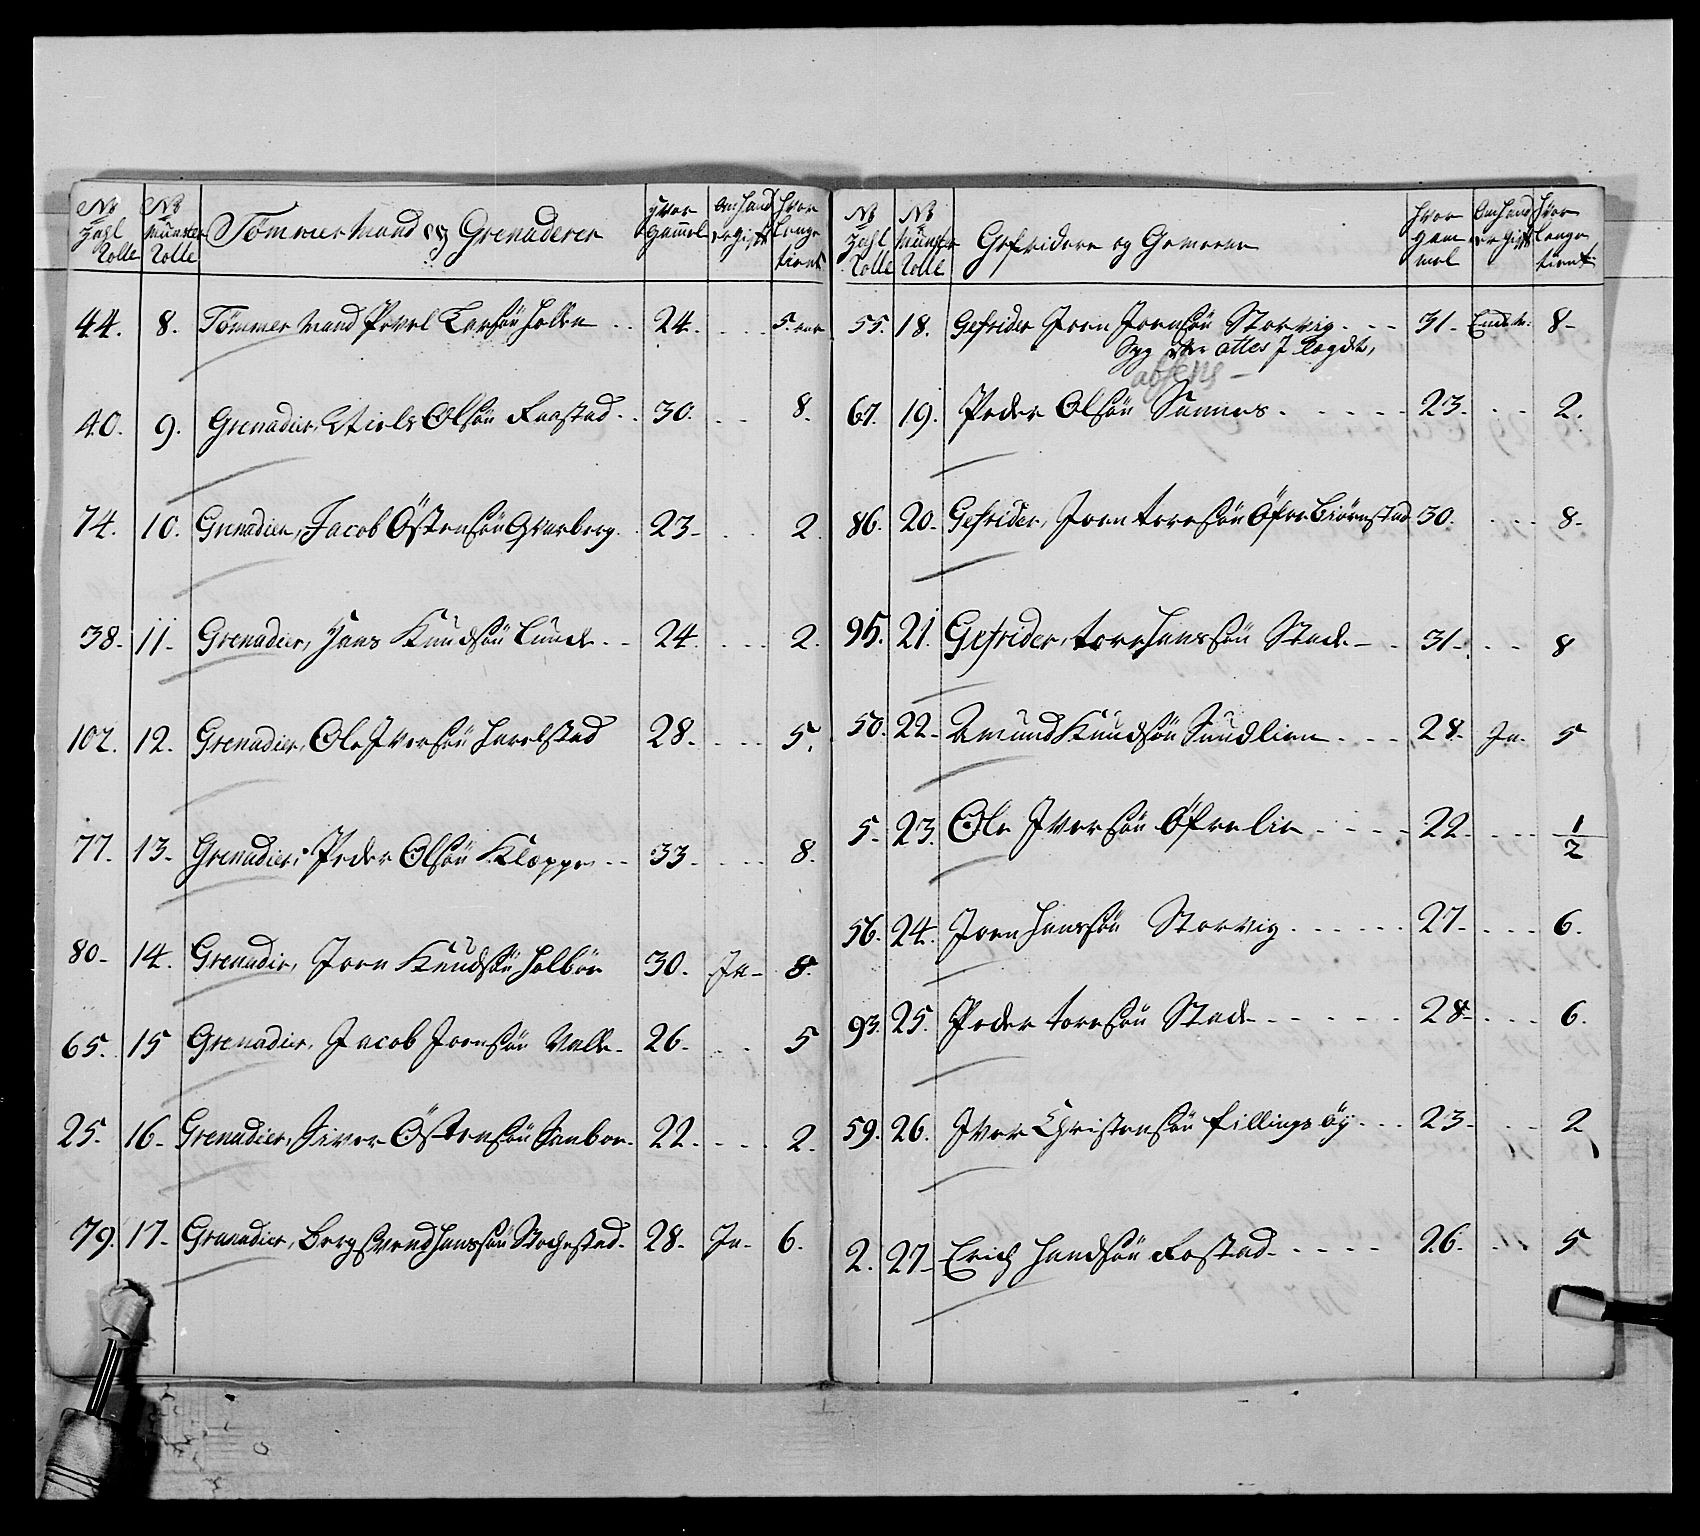 No Zahl Rolle | No Münster Rolle | Tömmermand og Grenaderer | Hvor gammel | Om hand er gift | Hvor lenge tient
44. 8. Tömmer Mand Povel Larsön Holen .. 24. ... 5. aar
40. 9. Grenadier, Niels Olsön Faastad .. 30. ... 8.
74. 10. Grenadier, Jacob Östensön Qvarberg. 23- ... 2.
38. 11. Grenadier, Hans Knudsön Lunde .. 24. ... 2.
102. 12. Grenadier, Ole Iversön Harelstad 28. ... 5.
77. 13. Grenadier, Peder Olsön Kloppen .. 33- ... 8.
80- 14. Grenadir, Joen Knudsön Holböe 30. Ja- 8.
65. 15 Grenadier, Jacob Joensön Valle- 26. .. 5
25. 16- Grenadier, Siver Östensön Sanboe- 22. ... 2.
79. 17- Granadier, Bergsvend Hanssön Stochestad- 28. Ja- 6.
No Zahl Rolle | No Münster Rolle | Gefridere og Gemeene | Hvor gammel | Om hand er gift | Hvor lenge tient
55. 18. Gefrider Joen Joensön Storvig ... 31- Enckem. 8-
Syg efter attest J. Lagdt,
absens -
67. 19. Peder Olsön Sannes ..... 23. ... 2.
86. 20- Gefrider, Joen Toresön Öfre Biörnstad 30. ... 8-
95. 21. Gefrider, Tore Hanssön Stade- . 31- ... 8
50. 22- Amund Knudsön Sundlien ... 28- Ja- 5
5. 23. Ole Iversön Öfrelie .... 22- ... 1/2
56. 24. Joen Hanssön Storvig ...... 27- ... 6.
93. 25. Peder Toresön Stade ...... 28- ... 6.
59. 26. Iver Christensön Fillingsöy ... 23- .. 2
2. 27- Erich Handsön Fostad ..... 26. ... 5